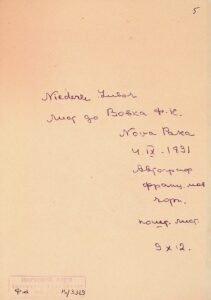 5
Niederle Lubor
лист до Вовка Ф. К.
Nova Paka
4. IX - 1891
Автограф
франц. мов
чорн.
пошт. лист.
9 x 12.
Ф-а